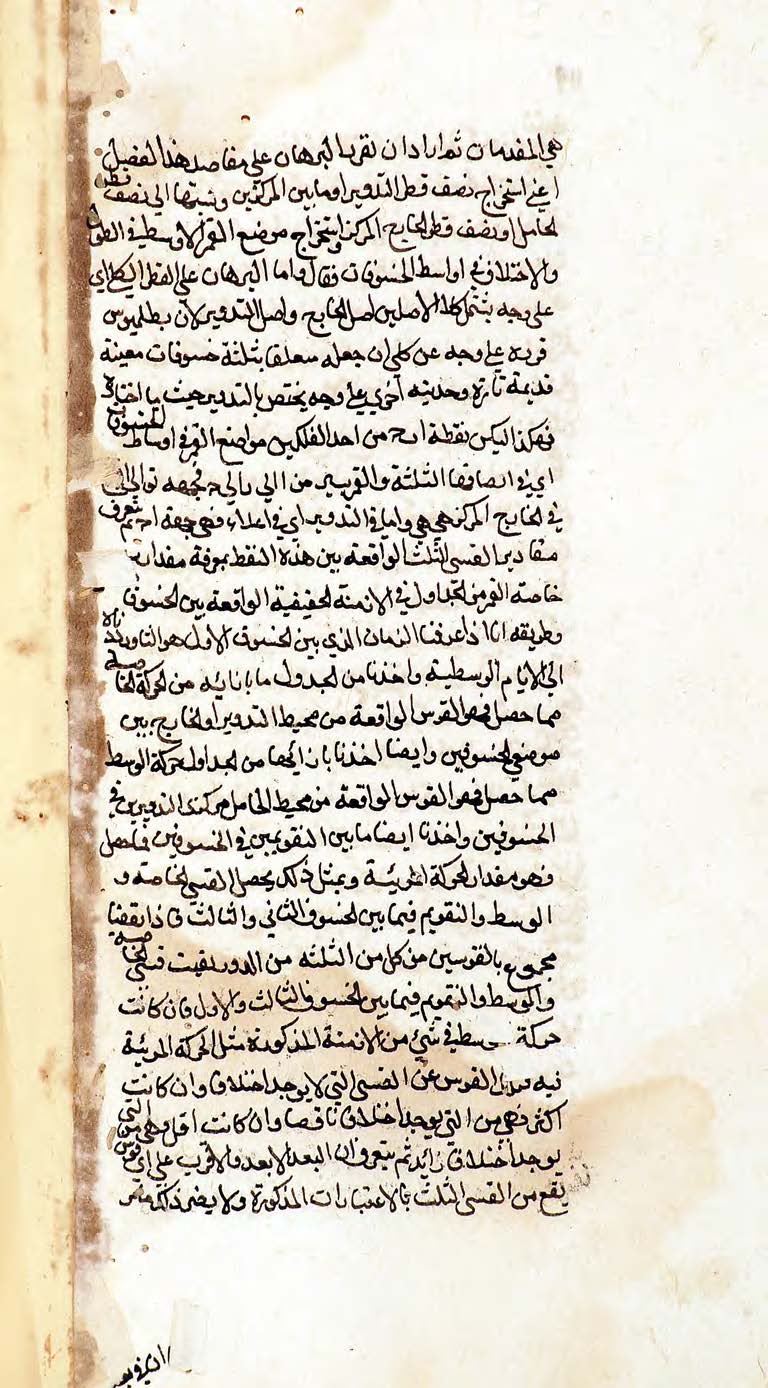 هي المقدمات ثم اراد ان يقرر البرهان علي مقاصد هذا الفصل
اعني استخراج نصف قطر التدوير او ما بين المركزين ونسبتها الي نصف قطر
الحامل او نصف قطر الخارج المركز واستخراج موضع القمر الاوسط في الطول
والاختلاف في اواسط الخسوفات فقال واما البرهان علي النظر الكلي اي
علي وجه يشتمل كلا الاصلين اصل الخارج واصل التدوير لان بطلميوس
قرره علي وجه عن كلي ان جعله متعلقا بثلثة خسوفات معينة
قديمة تارة وحديثه اخري علي وجه يختص بالتدوير حيث ما اختاره
فهكذا ليكن نقطة ا ب ح من احد الفلكين مواضع القمر في اوساط الخسوفات
اي في انصافها الثلثة والقمر يسير من ا الي ب الي ح فجهه توالي
في الخارج المركز هي هي واما في التدوير اي في اعلاه فهي جهة ا ح ثم يتعرف
مقادير القسي الثلث الواقعة بين هذه النقط بمعرفة مقدار
خاصة القمر من الجداول في الازمنة الحقيقية الواقعة بين الخسوفات
وطريقه انا اذا عرفنا الزمان الذي بين الخسوف الاول هو الثاني ورددناه
الي الايام الوسطية واخذنا من الجدول ما بازائه من الحركة الخاصة
فما حصل فهو القوس الواقعة من محيط التدوير او الخارج بين
موضعي الخسوفين وايضا اخذنا بازائها من الجداول حركة الوسط
فما حصل فهو القوس الواقعة من محيط الحامل بين مركزي التدوير في
الخسوفين واخذنا ايضا ما بين التقويمين في الخسوفين فما حصل
فهو مقدار الحركة المرئية وبمثل ذلك يحصل القسي الخاصة و
الوسط والتقويم فيما بين الخسوف الثاني والثالث فاذا نقصنا
مجموع القوسين من كل من الثلثه من الدور بقيت قسي الخاصة
والوسط والتقويم فيما بين الخسوف الثالث والاول فان كانت
حركة وسط في شئ من الازمنة المذكورة مثل الحركة المرئية
فيه القوس من القسي التي لا يوجد اختلافا وان كانت
اكثر فهي من التي يوجد اختلافا ناقصا وان كانت اقل فهي من التي
يوجد اختلافا زائد ثم يتعرف ان البعد الابعد والاقرب علي اي قوس
يقع من القسي الثلث بالاعتبارات المذكورة ولا يضر ذلك